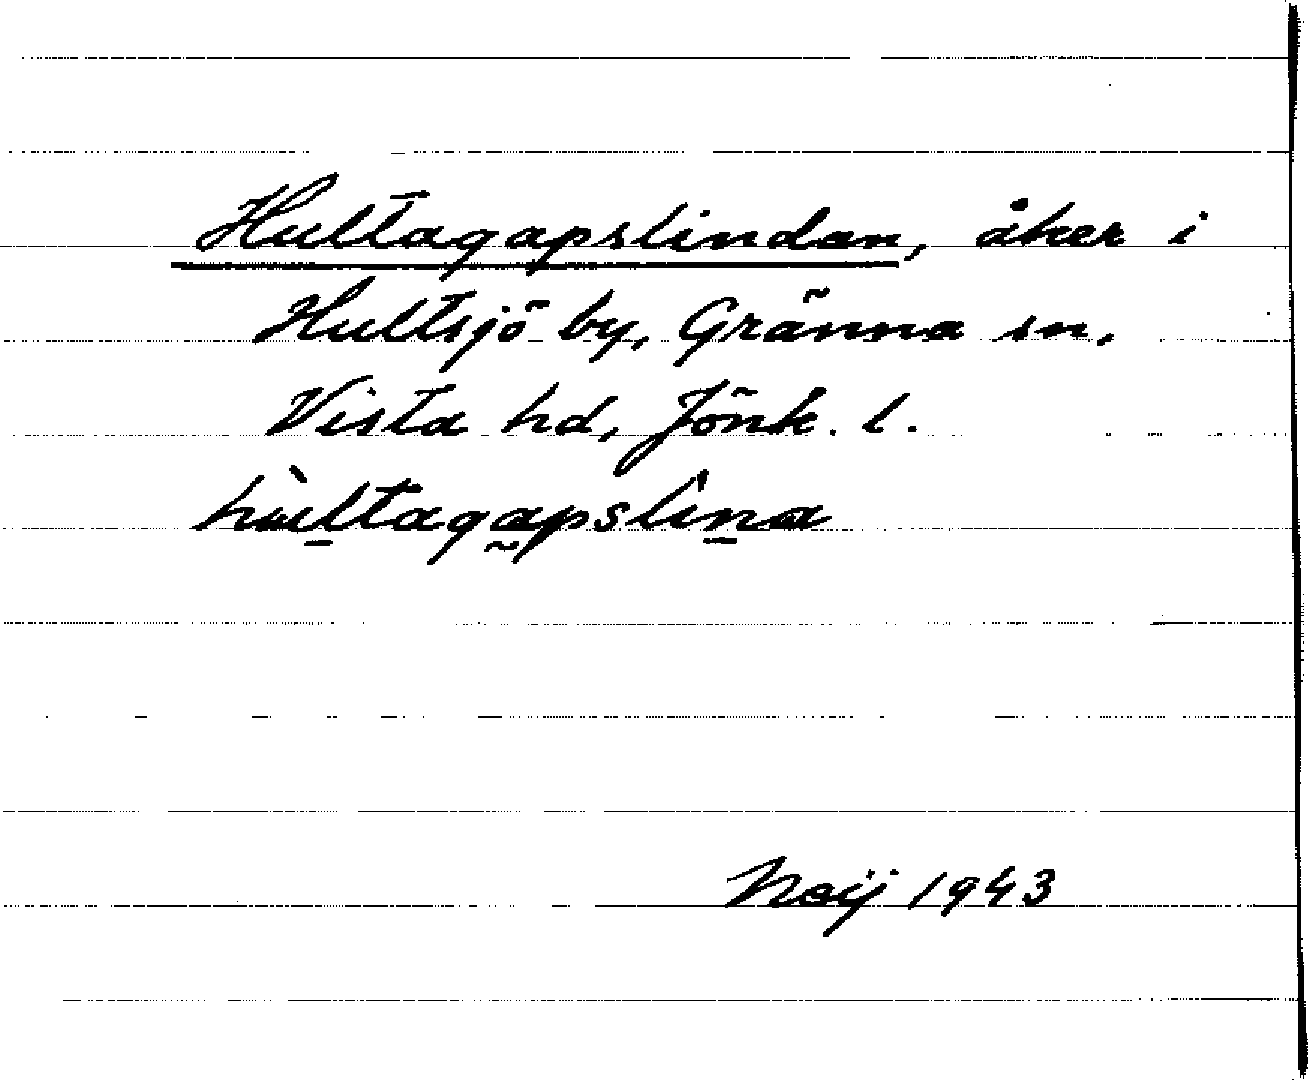 Hultagapslindan, åker i
Hultsjö by, Gränna sn,
Vista hd, Jönk. l.
hùltagapslîna
Noij 1943